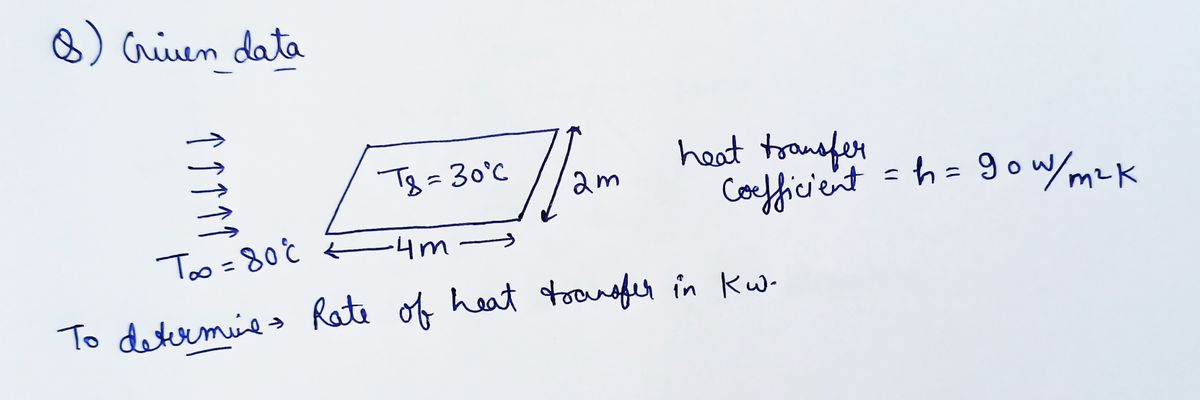 Q) Given data
Ts = 30°C
2m
heat transfer
coefficient = h = 90 W/m²K
T∞ = 80°C
4m
To determine → Rate of heat transfer in Kw.